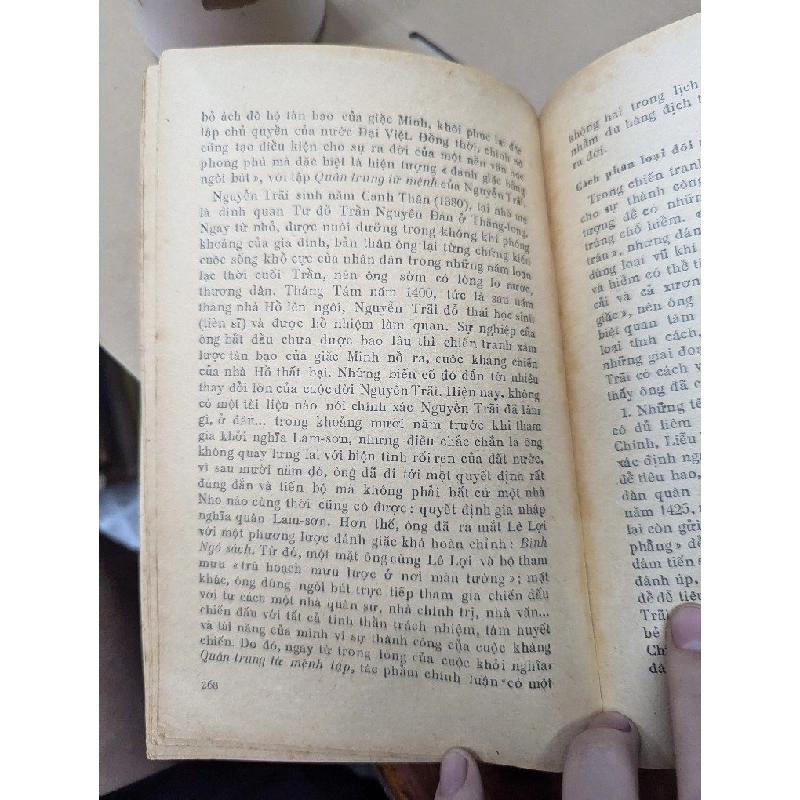 bỏ ách đô hộ tàn bạo của giặc Minh, khôi phục
lập chủ quyền của nước Đại Việt. Đồng thời, chính nó
cũng tạo điều kiện cho sự ra đời của một nền văn học
phong phú mà đặc biệt là hiện tượng « đánh giặc bằng
ngòi bút », với tập Quân trung từ mệnh của Nguyễn Trãi.
Nguyễn Trãi sinh năm Canh Thân (1380), tại nhà
là dinh quan Tư đồ Trần Nguyên Đán ở Thăng-long.
Ngay từ nhỏ, được nuôi dưỡng trong không khí phóng
khoáng của gia đình, bản thân ông lại từng chứng kiến
cuộc sống khổ cực của nhân dân trong những năm loạn
lạc thời cuối Trần, nên ông sớm có lòng lo nước,
thương dân. Tháng Tám năm 1400, tức là sau năm
tháng nhà Hồ lên ngôi, Nguyễn Trãi đỗ thái học sinh
(tiến sĩ) và được bổ nhiệm làm quan. Sự nghiệp của
ông bắt đầu chưa được bao lâu thì chiến tranh xâm
lược tàn bạo của giặc Minh nổ ra, cuộc kháng chiến
của nhà Hồ thất bại. Những biến cố đó dẫn tới nhiều
thay đổi lớn của cuộc đời Nguyễn Trãi. Hiện nay, không
có một tài liệu nào nói chính xác Nguyễn Trãi đã làm
gì, ở đâu... trong khoảng mười năm trước khi tham
gia khởi nghĩa Lam-sơn, nhưng điều chắc chắn là ông
không quay lưng lại với hiện tình rối ren của đất nước,
vì sau mười năm đó, ông đã đi tới một quyết định rất
đúng đắn và tiến bộ mà không phải bất cứ một nhà
Nho nào cùng thời cũng có được : quyết định gia nhập
nghĩa quân Lam-sơn. Hơn thế, ông đã ra mắt Lê Lợi
với một phương lược đánh giặc khá hoàn chỉnh : Bình
Ngô sách. Từ đó, một mặt ông cùng Lê Lợi và bộ tham
mưu « trù hoạch mưu lược ở nơi màn tướng » ; mặt
khác, ông dùng ngòi bút trực tiếp tham gia chiến đấu
với tư cách một nhà quân sự, nhà chính trị, nhà văn...
chiến đấu với tất cả tinh thần trách nhiệm, tâm huyết
và tài năng của mình vì sự thành công của cuộc kháng
chiến. Do đó, ngay từ trong lòng của cuộc khởi nghĩa,
Quân trung từ mệnh tập, tác phẩm chính luận có một
268
không hai trong lịch
nhằm dụ hàng địch
ra đời.
Cách phân loại đối
Trong chiến tranh
cho sự thành công
tượng để có những
trúng chỗ hiểm.
trán », nhưng đán
dùng loại vũ khí
và hiểm có thể
cãi và cả xương
giặc », nên ông
biệt quan tâm
loại tính cách,
những giai đoạ
Trãi có cách v
thấy ông đã c
1. Những tê
có dũ liêm
Chính, Liễu
xác định ngu
để tiêu hao,
dân quân
năm 1425,
lại còn gửi
phẳng » để
dám tiến s
đánh úp,
để đồ tiêu
Trãi
bè
Chí
dá